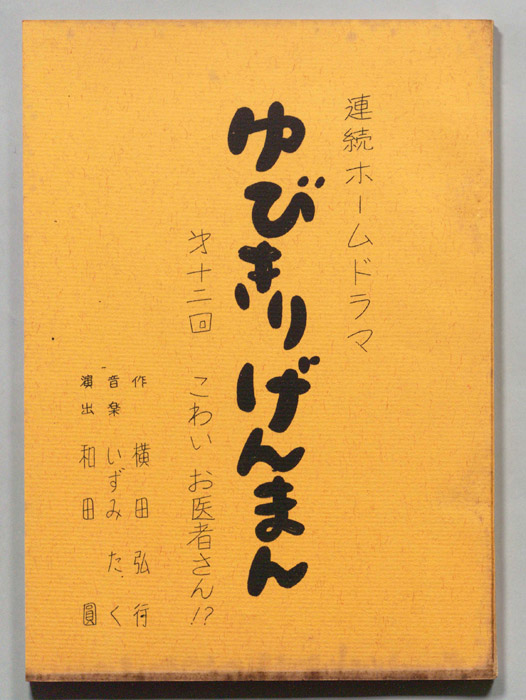 連続ホームドラマ
ゆびきりげんまん
㐧十二回 こわい お医者さん!?
作 横田弘行
音楽 いずみたく
演出 和田 圓